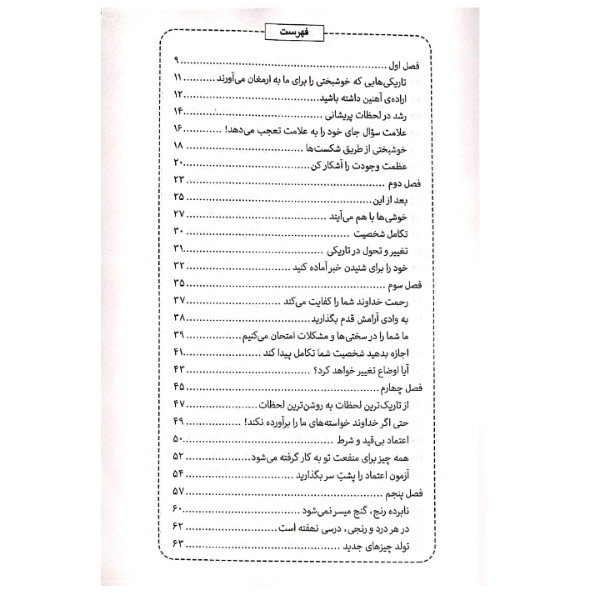 فهرست
فصل اول ........ ۹
تاریکی‌هایی که خوشبختی را برای ما به ارمغان می‌آورند ........ ۱۱
اراده‌ی آهنین داشته باشید ........ ۱۲
رشد در لحظات پریشانی ........ ۱۴
علامت سؤال جای خود را به علامت تعجب می‌دهد! ........ ۱۶
خوشبختی از طریق شکست‌ها ........ ۱۸
عظمت وجودت را آشکار کن ........ ۲۰
فصل دوم ........ ۲۳
بعد از این ........ ۲۵
خوشی‌ها با هم می‌آیند ........ ۲۷
تکامل شخصیت ........ ۳۰
تغییر و تحول در تاریکی ........ ۳۱
خود را برای شنیدن خبر آماده کنید ........ ۳۲
فصل سوم ........ ۳۵
رحمت خداوند شما را کفایت می‌کند ........ ۳۷
به وادی آرامش قدم بگذارید ........ ۳۸
ما شما را در سختی‌ها و مشکلات امتحان می‌کنیم ........ ۳۹
اجازه بدهید شخصیت شما تکامل پیدا کند ........ ۴۱
آیا اوضاع تغییر خواهد کرد؟ ........ ۴۳
فصل چهارم ........ ۴۵
از تاریک‌ترین لحظات به روشن‌ترین لحظات ........ ۴۷
حتی اگر خداوند خواسته‌های ما را برآورده نکند! ........ ۴۹
اعتماد بی‌قید و شرط ........ ۵۰
همه چیز برای منفعت تو به کار گرفته می‌شود ........ ۵۲
آزمون اعتماد را پشتِ سر بگذارید ........ ۵۴
فصل پنجم ........ ۵۷
نابرده رنج، گنج میسر نمی‌شود ........ ۶۰
در هر درد و رنجی، درسی نهفته است ........ ۶۲
تولد چیزهای جدید ........ ۶۳